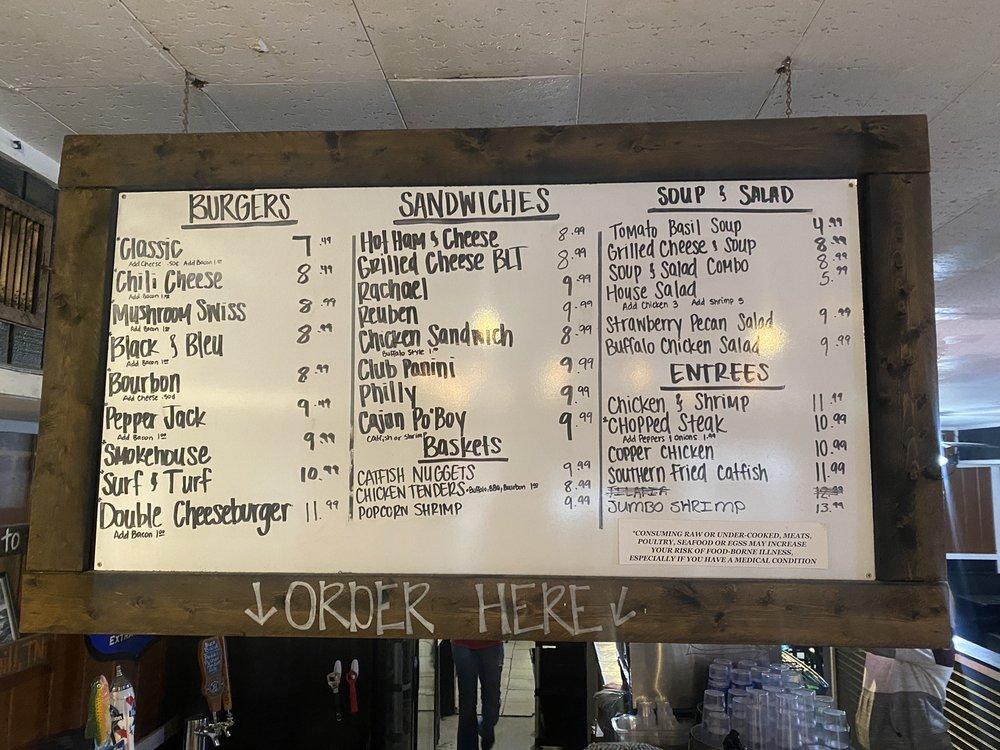 BURGERS
*Classic 7.49
Add Cheese .50¢ Add Bacon 1.00
*Chili Cheese 8.49
Add Bacon 1.00
*Mushroom Swiss 8.99
Add Bacon 1.00
*Black & Bleu 8.99
Add Bacon 1.00
*Bourbon 8.99
Add Cheese .50¢
*Pepper Jack 9.49
Add Bacon 1.00
*Smokehouse 9.99
*Surf & Turf 10.99
*Double Cheeseburger 11.99
Add Bacon 1.00
SANDWICHES
Hot Ham & Cheese 8.99
Grilled Cheese BLT 8.99
Rachael 9.99
Reuben 9.99
Chicken Sandwich 8.99
Buffalo Style 1.00
Club Panini 9.99
Philly 9.99
Cajan Po'Boy 9.99
Catfish or Shrimp
Baskets
CATFISH NUGGETS 9.99
CHICKEN TENDERS *Buffalo, BBQ, Bourbon 1.00 8.99
POPCORN SHRIMP 9.99
SOUP & SALAD
Tomato Basil Soup 4.99
Grilled Cheese & Soup 8.99
Soup & Salad Combo 8.99
House Salad 5.99
Add Chicken 3 Add Shrimp 5
Strawberry Pecan Salad 9.99
Buffalo Chicken Salad 9.99
ENTREES
Chicken & Shrimp 11.99
*CHOPPED Steak 10.99
Add Peppers & Onions 1.00
Copper Chicken 10.99
Southern Fried Catfish 11.99
TILAPIA 12.99
JUMBO SHRIMP 13.99
*CONSUMING RAW OR UNDER-COOKED, MEATS,
POULTRY, SEAFOOD OR EGSS MAY INCREASE
YOUR RISK OF FOOD-BORNE ILLNESS,
ESPECIALLY IF YOU HAVE A MEDICAL CONDITION
↓ORDER HERE↓
to
EXTRA